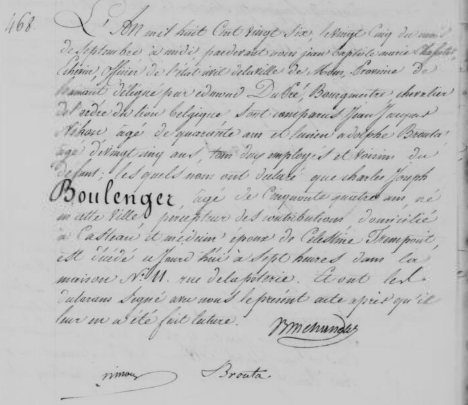 468
L'An mil huit Cent vingt Six, le vingt Cinq du mois
de Septembre à midi pardevant nous jean baptiste marie
Echevin, officier de l'état civil de la ville de Mons, Province de
hainaut délégué par édouard Dubré, Bourgmestre chevalier
de l'ordre du lion belgique sont comparus Jean Jacques
agé de quarante ans et lucien adolphe Brouta
agé de vingt cinq ans, tous deux employés et voisins du
défunt; les quels nous ont déclaré que charles Joseph
Boulenger, agé de Cinquante quatre ans, né
en cette ville percepteur des contributions domicilié
à Casteau et médecin époux de Célestine
est décédé ce jourd'hui à Sept heures dans la
maison N.° 11. rue de la poterie. Et ont les
déclarans Signé avec nous le présent acte après qu'il
leur en a été fait lecture.
Brouta